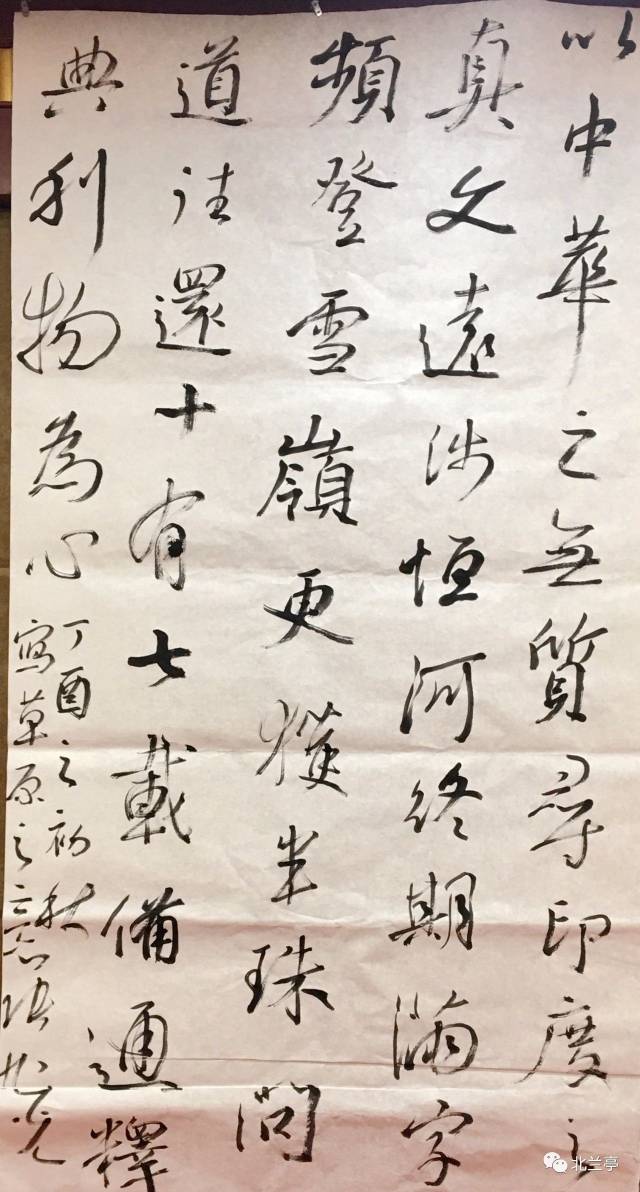 以中華之無質尋印度之
真文遠涉恒河終期滿字
頻登雪嶺更獲半珠問
道往還十有七載備通釋
典利物為心
丁酉之初秋
寫草原之意
北兰亭